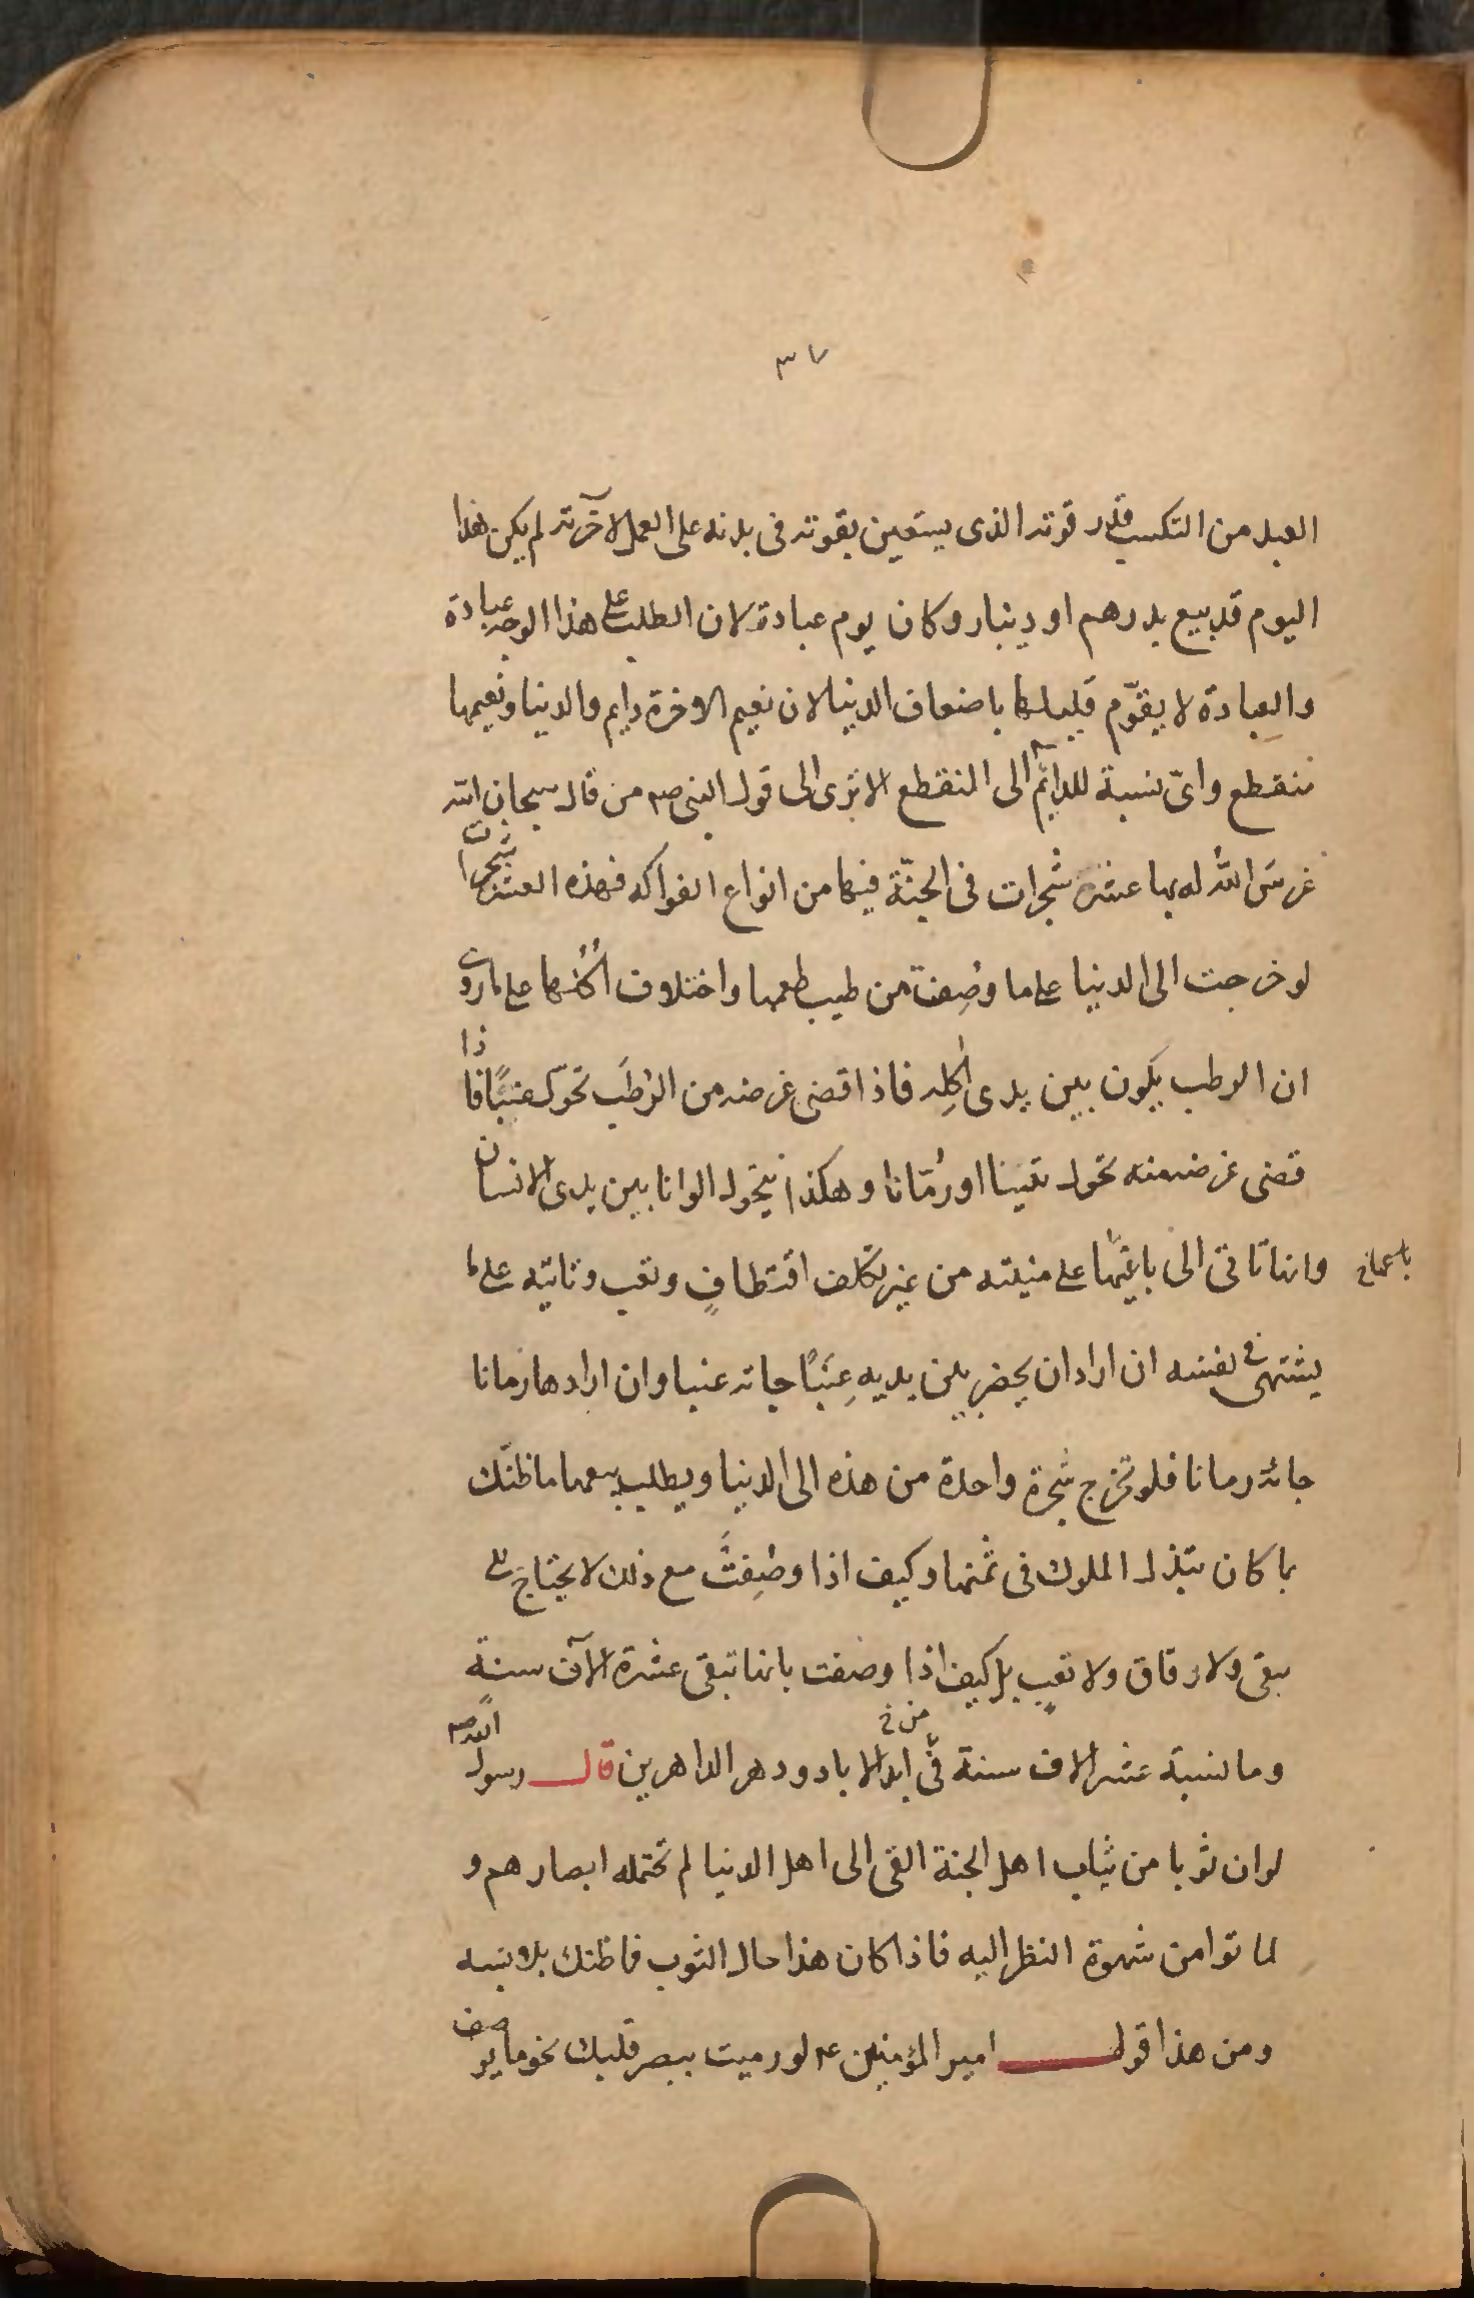 ٣٧
العبد من التكسب قدر قوته الذى يستعين بقوته فى بدنه على العمل لآخرته لم يكن هذا
اليوم قد بيع بدرهم او دينار وكان يوم عبادة لان الطلب على هذا الوجه عبادة
والعبادة لا يقوّم قليلها باضعاف الدنيا لان نعيم الاخرة دايم والدنيا ونعيمها
منقطع واىّ نسبة للدائم الى المنقطع الا ترى الى قول النبى صم من قال سبحان الله
غرسَ اللهُ له بها عشرة شجرات فى الجنّة فيها من انواع الفواكه فهذه العشر شجرات
لو خرجت الى الدنيا على ما وُصِفت من طيب طعمها واختلاف اُكُلُها على ما روى
ان الرطب يكون بين يدى اٰكِلِه فاذا قضى غرضه من الرُطَب تحوّل عنبًا فاذا
قضى غرضه منه تحول تينا او رُمّانا وهكذا يتحول الوانا بين يدى الانسان
وانها تاتى الى باغيها على منيته من غير تكلف اقتطافٍ وتعب وتاتيه على ما
يشتهى فى نفسه ان اراد ان يحضر بين يديه عِنَبًا جاته عنبا وان ارادها رمانا
جائته رمانا فلو تخرج شجرة واحدة من هذه الى الدنيا ويطلب بيعها ما ظنّك
بما كان تبذل الملوك فى ثمنها وكيف اذا وصِفتْ مع ذلك لا يحتاج الى
سقى ولا رقاق ولا تعبٍ بل كيف اذا وصفت بانها تبقى عشرة الآف سنةً
وما نسبة عشر الاف سنة فى من خ ابد الاباد ودهر الداهرين قال رسول الله صم
لو ان ثوبا من ثياب اهل الجنة القى الى اهل الدنيا لم تحتمله ابصارهم و
لماتوا من شهوة النظر اليه فاذا كان هذا حال الثوب فما ظنك بلابسه
ومن هذا قول امير المؤمنين عم لو رميت ببصر قلبك نحو ما يوصف